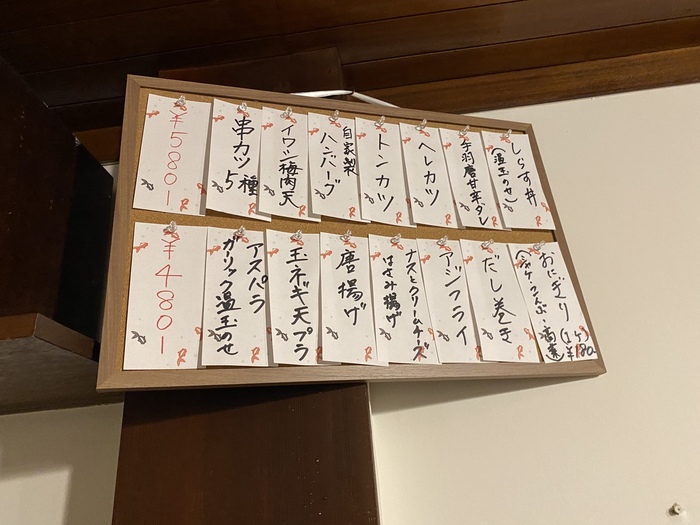 しらす丼
(温玉のせ)
手羽唐甘辛タレ
ヘレカツ
トンカツ
自家製
ハンバーグ
イワシ梅肉天
串カツ
5種
¥580-
おにぎり(1ケ
¥180)
(シャケ・こんぶ・高菜)
だし巻き
アジフライ
ナスとクリームチーズ
はさみ揚げ
唐揚げ
玉ネギ天プラ
アスパラ
ガーリック温玉のせ
¥480-